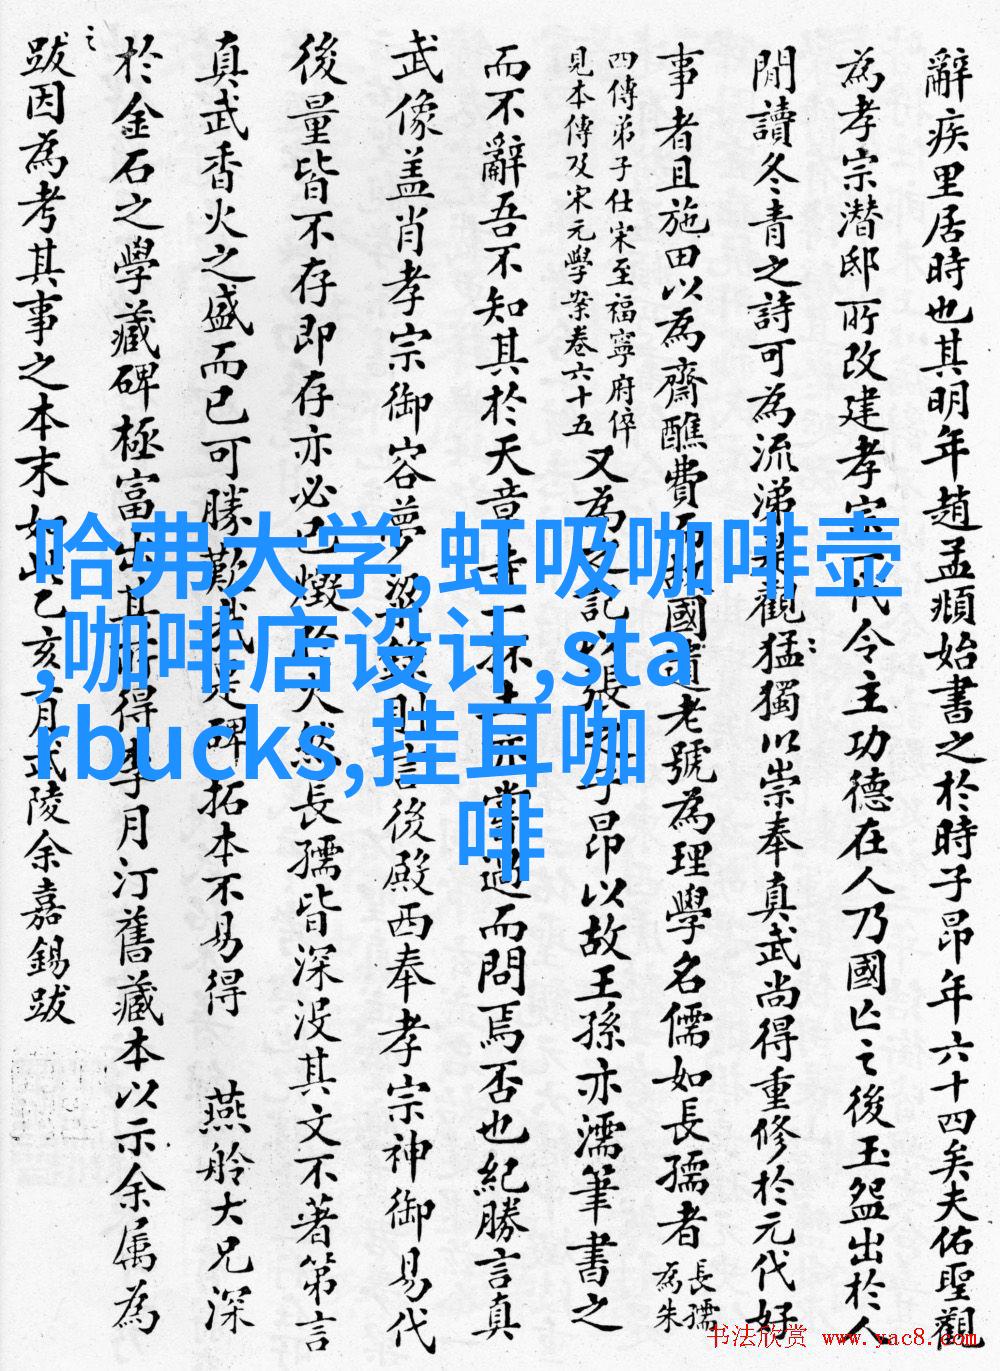 辭疾里居時也其明年趙孟頫始書之於時子昂年六十四矣夫佑聖觀
為孝宗潛邸所改建孝宗一代令主功德在人乃國亡之後玉盌出於人
閒讀冬青之詩可為流涕
觀猛獨以崇奉真武尚得重修於元代好
事者且施田以為齋醮費
國遺老號為理學名儒如長孺者
長孺
為朱
四傳弟子仕宋至福寧府倅
見本傳及宋元學案卷六十五
又為之記以張子昂以故王孫亦濡筆書之
而不辭吾不知其於天章寺一抔土亦嘗過而問焉否也紀勝言真
武像蓋肖孝宗御容夢
則言後殿西奉孝宗神御易代
後量皆不存即存亦必已燬於火然長孺皆深沒其文不著第言
真武香火之盛而已可勝歎哉是碑拓本不易得
燕舲大兄深
於金石之學藏碑極富出其所得李月汀舊藏本以示余属為
之
跋因為考其事之本末如此乙亥六月武陵余嘉錫跋
哈弗大学,虹吸咖啡壶
,咖啡店设计,sta
rbucks,挂耳咖
啡
书法欣赏 www.yac8.com